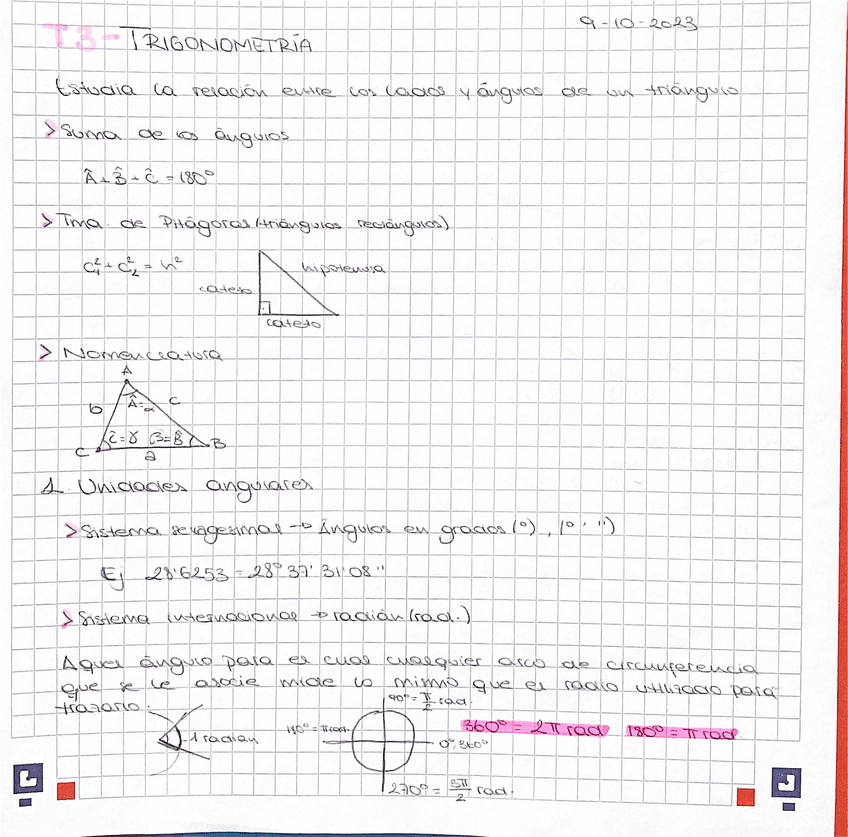 9-10-2023
T3-TRIGONOMETRÍA
Estudia la relación entre los lados y ángulos de un triángulo
> Suma de los ángulos
Â + B̂ + Ĉ = 180º
> Tma. de Pitágoras (triángulos rectángulos)
C₁² + C₂² = h²
hipotenusa
cateto
cateto
> Nomenclatura
A
b Â=α c
C Ĉ=γ β=B̂ B
a
1. Unidades angulares
> Sistema sexagesimal → Ángulos en grados (º), (º ' '')
Ej 28'6253 = 28º 37' 31'08''
> Sistema internacional → radián (rad.)
Aquel ángulo para el cual cualquier arco de circunferencia
que se le asocie mide lo mismo que el radio utilizado para
trazarlo.
90º = π/2 rad.
1 radián
180º = π rad.
0º, 360º
270º = 3π/2 rad.
360º = 2π rad 180º = π rad